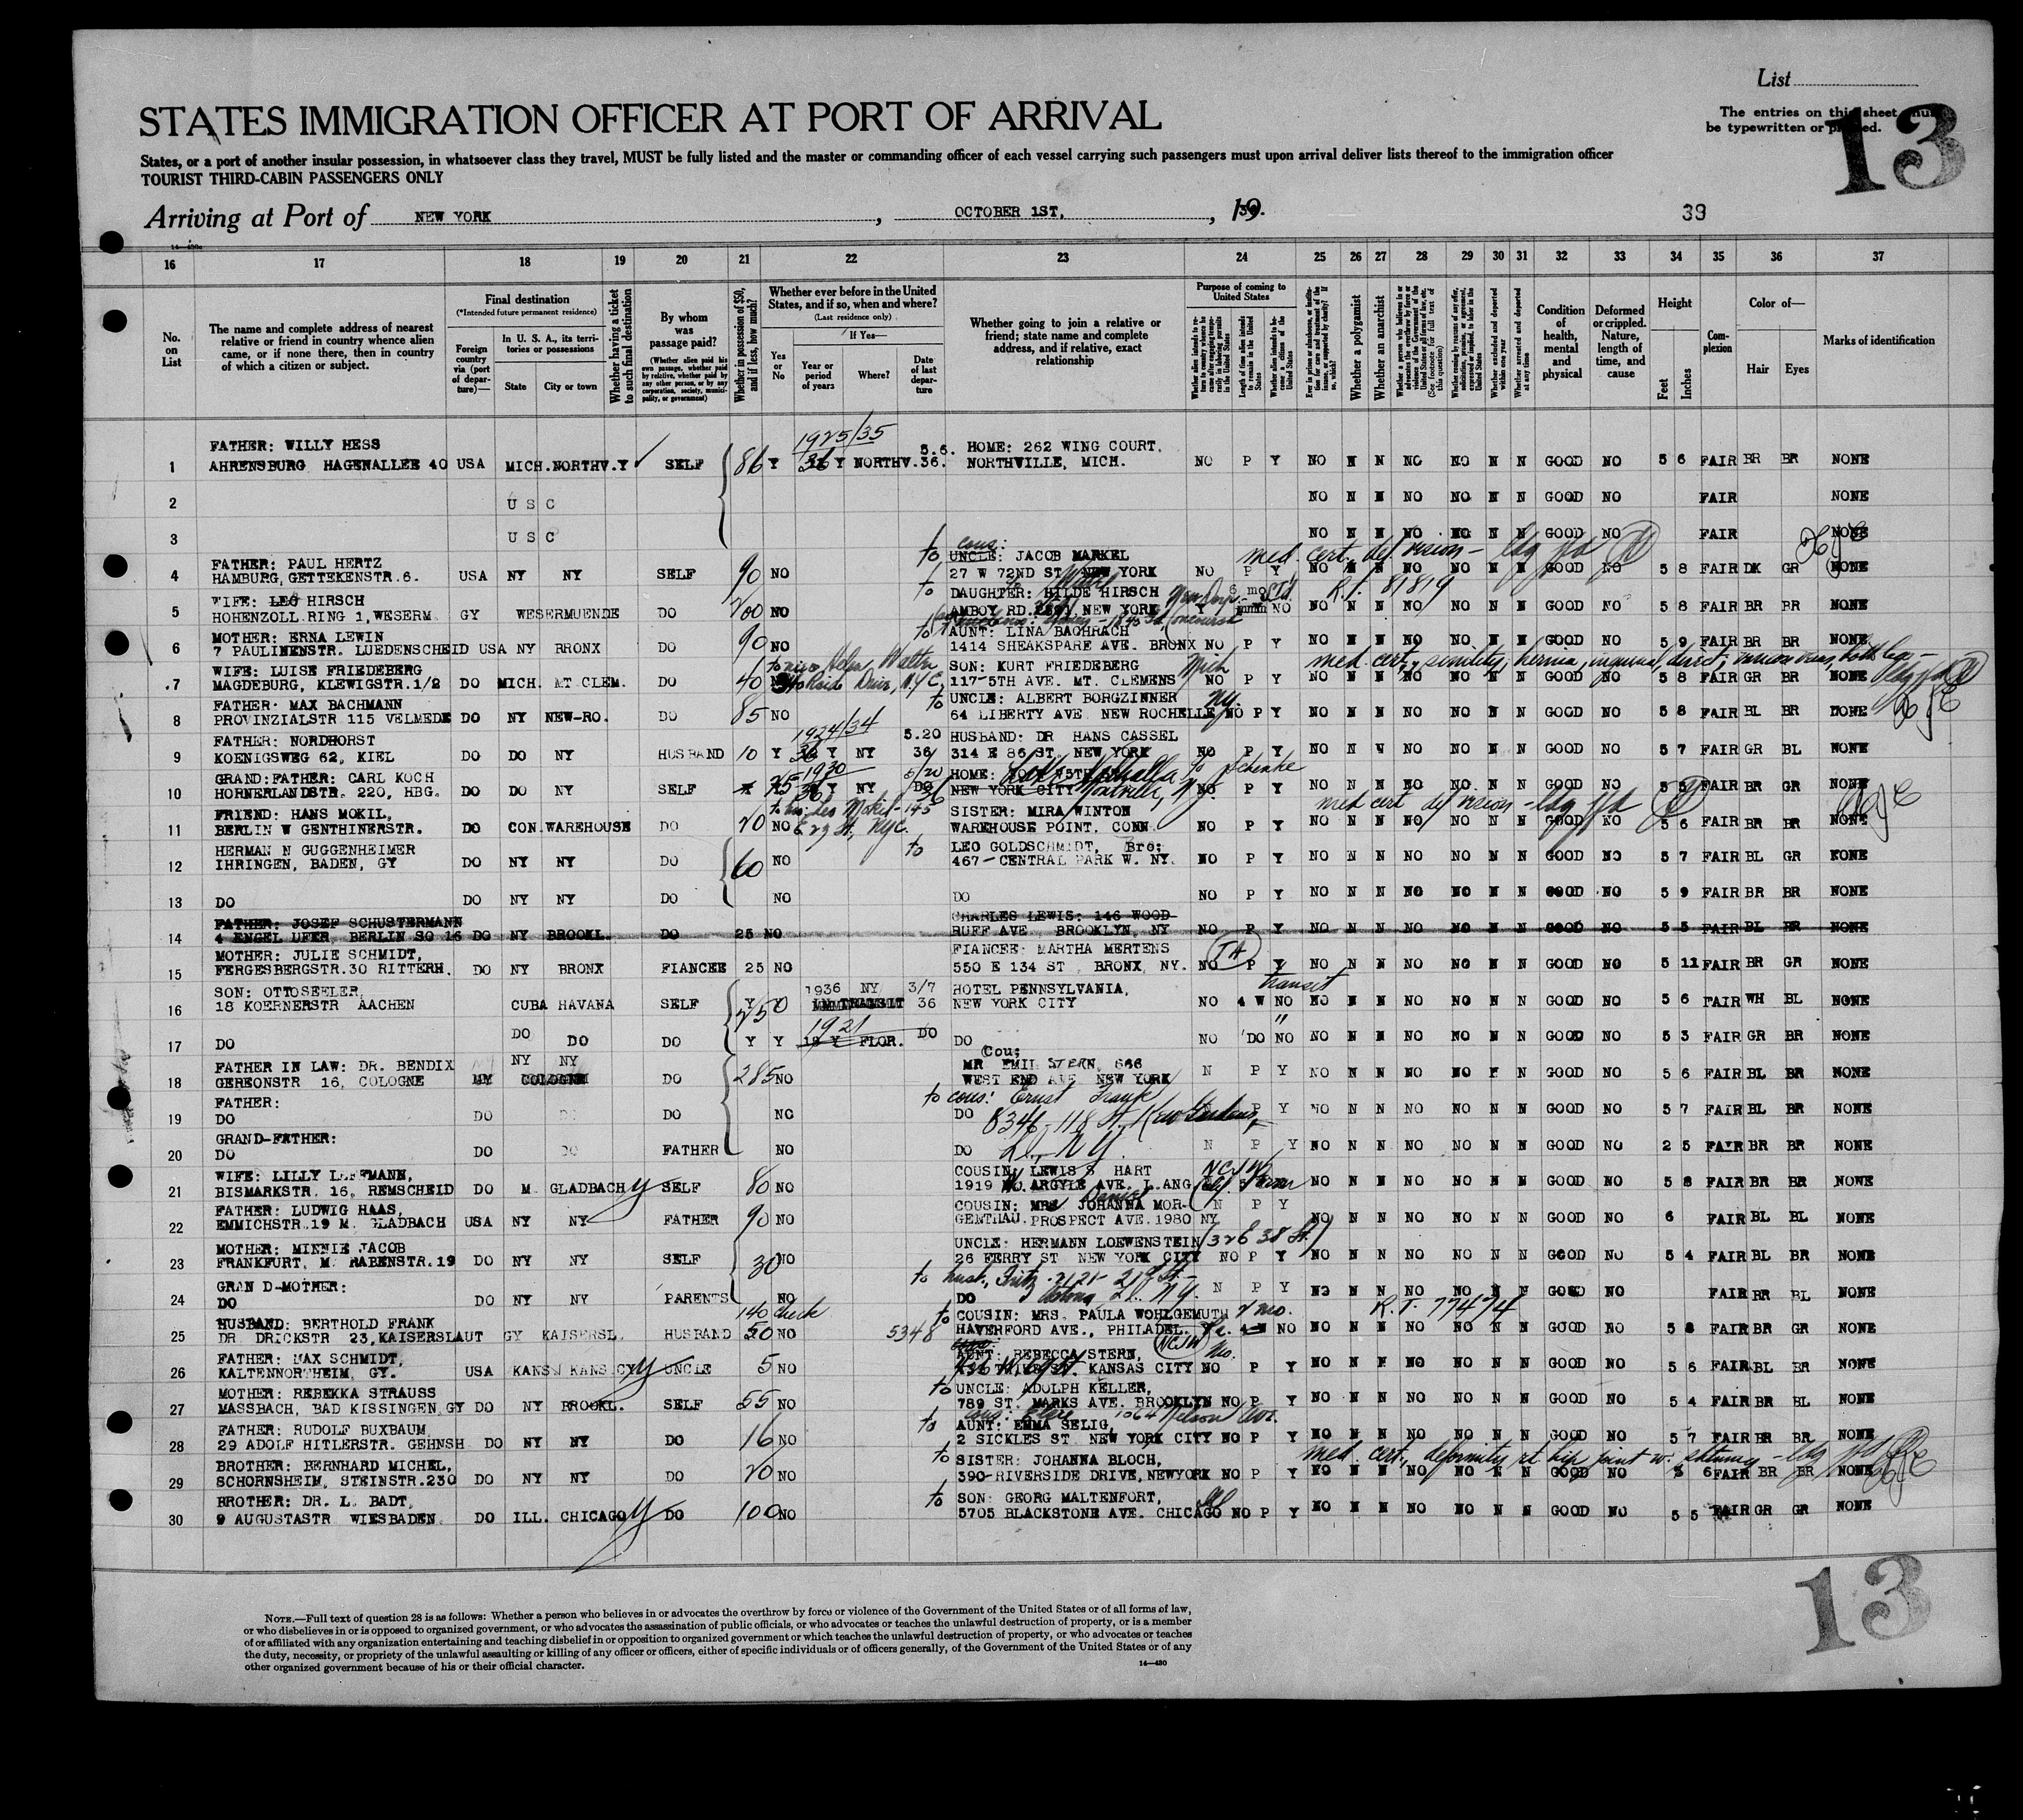 List
The entries on this sheet must
be typewritten or printed.
13
STATES IMMIGRATION OFFICER AT PORT OF ARRIVAL
States, or a port of another insular possession, in whatsoever class they travel, MUST be fully listed and the master or commanding officer of each vessel carrying such passengers must upon arrival deliver lists thereof to the immigration officer
TOURIST THIRD-CABIN PASSENGERS ONLY
Arriving at Port of NEW YORK, OCTOBER 1ST, 19
39
16 17 18 19 20 21 22 23 24 25 26 27 28 29 30 31 32 33 34 35 36 37
No. on List
The name and complete address of nearest relative or friend in country whence alien came, or if none there, then in country of which a citizen or subject.
Final destination
(*Intended future permanent residence)
Foreign country via (port of departure)—
In U. S. A., its territories or possessions
State
City or town
Whether having a ticket to such final destination
By whom was passage paid?
(Whether alien paid his own passage, whether paid by relative, whether paid by any other person, or by any corporation, society, municipality, or government)
Whether in possession of $50, and if less, how much?
Whether ever before in the United States, and if so, when and where?
(Last residence only)
Yes or No
If Yes—
Year or period of years
Where?
Date of last departure
Whether going to join a relative or friend; state name and complete address, and if relative, exact relationship
Purpose of coming to United States
Whether a polygamist
Whether an anarchist
Condition of health, mental and physical
Deformed or crippled. Nature, length of time, and cause
Height
Feet
Inches
Complexion
Color of—
Hair
Eyes
Marks of identification
1925/35
FATHER: WILLY HESS 5.6. HOME: 262 WING COURT,
1 AHRENSBURG HAGENALLEE 40 USA MICH. NORTHV. Y SELF 86 Y 36 Y NORTHV. 36. NORTHVILLE, MICH. NO P Y NO N N NO NO N N GOOD NO 5 6 FAIR BR BR NONE
2 U S C NO N N NO NO N N GOOD NO FAIR NONE
3 U S C NO N N NO NO N N GOOD NO FAIR NONE
FATHER: PAUL HERTZ to cous: UNCLE: JACOB MARKEL med. cert. def vision
4 HAMBURG, GETTEKENSTR.6. USA NY NY SELF 90 NO 27 W 72ND ST NEW YORK NO P Y NO N N NO NO N N GOOD NO 5 8 FAIR DK GR NONE
WIFE: LEO HIRSCH to DAUGHTER: HILDE HIRSCH 6 mo R.T. 81819
5 HOHENZOLL.RING 1, WESERM. GY WESERMUENDE DO 200 NO AMBOY RD. NEW YORK Y NO NO N N NO NO N N GOOD NO 5 8 FAIR BR BR NONE
MOTHER: ERNA LEWIN to AUNT: LINA BACHRACH
6 7 PAULINENSTR. LUEDENSCHEID USA NY BRONX DO 90 NO 1414 SHEAKSPARE AVE. BRONX NO P Y NO N N NO NO N N GOOD NO 5 9 FAIR BR BR NONE
WIFE: LUISE FRIEDEBERG SON: KURT FRIEDEBERG Mich med. cert., senility, hernia, inguinal, direct,
7 MAGDEBURG, KLEWIGSTR.1/2 DO MICH. MT CLEM. DO 40 117-5TH AVE. MT. CLEMENS NO P Y NO N N NO NO N N GOOD NO 5 8 FAIR GR BR NONE
FATHER: MAX BACHMANN to UNCLE: ALBERT BORGZINNER NY.
8 PROVINZIALSTR 115 VELMEDE DO NY NEW-RO. DO 85 NO 64 LIBERTY AVE NEW ROCHELLE NO P Y NO N N NO NO N N GOOD NO 5 8 FAIR BL BR NONE
1924/34
FATHER: NORDHORST 5.20 HUSBAND: DR HANS CASSEL
9 KOENIGSWEG 62, KIEL DO DO NY HUSBAND 10 Y 36 Y NY 36 314 E 86 ST. NEW YORK NO P Y NO N N NO NO N N GOOD NO 5 7 FAIR GR BL NONE
GRAND:FATHER: CARL KOCH 1930 5/20 HOME:
10 HORNERLANDSTR. 220, HBG. DO DO NY SELF 25 Y NY DO NEW YORK CITY NO P Y NO N N NO NO N N GOOD NO 5 5 FAIR BR GR NONE
FRIEND: HANS MOKIL, SISTER: MIRA WINTON med cert def vision
11 BERLIN W GENTHINERSTR. DO CON. WAREHOUSE DO 20 NO WAREHOUSE POINT. CONN. NO P Y NO N N NO NO N N GOOD NO 5 6 FAIR BR BR NONE
HERMAN N GUGGENHEIMER to LEO GOLDSCHMIDT, Bro:
12 IHRINGEN, BADEN, GY DO NY NY DO 60 NO 467-CENTRAL PARK W. NY. NO P Y NO N N NO NO N N GOOD NO 5 7 FAIR BL GR NONE
13 DO DO NY NY DO NO DO NO P Y NO N N NO NO N N GOOD NO 5 9 FAIR BR BR NONE
FATHER: JOSEF SCHUSTERMANN CHARLES LEWIS: 146 WOOD-
14 4 ENGEL UFER, BERLIN SO 16 DO NY BROOKL. DO 25 NO RUFF AVE BROOKLYN, NY NO P Y NO N N NO NO N N GOOD NO 5 5 FAIR BL BR NONE
MOTHER: JULIE SCHMIDT, FIANCEE: MARTHA MERTENS
15 FERGESBERGSTR.30 RITTERH. DO NY BRONX FIANCEE 25 NO 550 E 134 ST , BRONX, NY. NO P Y NO N N NO NO N N GOOD NO 5 11 FAIR BR GR NONE
SON: OTTOSEELER, 1936 NY 3/7 HOTEL PENNSYLVANIA, transit
16 18 KOERNERSTR AACHEN CUBA HAVANA SELF Y 250 IN TRANSIT 36 NEW YORK CITY NO 4 W NO NO N N NO NO N N GOOD NO 5 6 FAIR WH BL NONE
1921
17 DO DO DO DO Y Y FLOR. DO DO NO DO NO NO N N NO NO N N GOOD NO 5 3 FAIR GR BR NONE
FATHER IN LAW: DR. BENDIX NY NY Cou: MR EMIL STERN, 666
18 GEREONSTR 16, COLOGNE COLOGNE DO 285 NO WEST END AVE NEW YORK N P Y NO N N NO NO N N GOOD NO 5 6 FAIR BL BR NONE
FATHER: to cous: Ernst Frank
19 DO DO DO NO DO 8346-118 St. Kew Gardens, P Y NO N N NO NO N N GOOD NO 5 7 FAIR BL BR NONE
GRAND-FATHER:
20 DO DO DO FATHER NO DO N P Y NO N N NO NO N N GOOD NO 2 5 FAIR BR BR NONE
WIFE: LILLY COUSIN: LEWIS S HART
21 BISMARKSTR. 16, REMSCHEID DO M. GLADBACH SELF 80 NO 1919 ARGYLE AVE. L.ANG NO N N NO NO N N GOOD NO 5 8 FAIR BR BR NONE
FATHER: LUDWIG HAAS, COUSIN: MRS JOHANNA MOR-
22 EMMICHSTR.19 M. GLADBACH USA NY NY FATHER 90 NO GENTHAU. PROSPECT AVE.1980 NY N P Y NO N N NO NO N N GOOD NO 6 FAIR BL BL NONE
MOTHER: MINNIE JACOB UNCLE: HERMANN LOEWENSTEIN (326 E 38 St.)
23 FRANKFURT, M. RABENSTR.19 DO NY NY SELF 30 NO 26 FERRY ST NEW YORK CITY NO P Y NO N N NO NO N N GOOD NO 5 4 FAIR BL BR NONE
GRAN D-MOTHER: to husb., Fritz
24 DO DO NY NY PARENTS NO DO N P Y NO N N NO NO N N GOOD NO FAIR BR BL NONE
HUSBAND: BERTHOLD FRANK 140 check to COUSIN: MRS. PAULA WOHLGEMUTH 2 mo. R.T. 77474
25 DR. DRICKSTR 23, KAISERSLAUT GY KAISERSL. HUSBAND 50 NO 5348 HAVERFORD AVE., PHILADEL. NO NO N N NO NO N N GOOD NO 5 8 FAIR BR GR NONE
FATHER: MAX SCHMIDT, AUNT: REBECCA STERN, NCJW Mo.
26 KALTENNORTHEIM, GY. USA KANS. KANS CY UNCLE 5 NO KANSAS CITY NO P Y NO N N NO NO N N GOOD NO 5 6 FAIR BL BR NONE
MOTHER: REBEKKA STRAUSS to UNCLE: ADOLPH KELLER,
27 MASSBACH, BAD KISSINGEN, GY DO NY BROOKL. SELF 55 NO 789 ST. MARKS AVE. BROOKLYN NO P Y NO N N NO NO N N GOOD NO 5 4 FAIR BR BL NONE
FATHER: RUDOLF BUXBAUM, to AUNT: EMMA SELIG, 1064 Nelson Ave.
28 29 ADOLF HITLERSTR. GEHNSH DO NY NY DO 16 NO 2 SICKLES ST NEW YORK CITY NO P Y NO N N NO NO N N GOOD NO 5 7 FAIR BR BR NONE
BROTHER: BERNHARD MICHEL, to SISTER: JOHANNA BLOCH, med. cert., deformity rt hip joint
29 SCHORNSHEIM, STEINSTR.230 DO NY NY DO 20 NO 390-RIVERSIDE DRIVE, NEWYORK NO P Y NO N N NO NO N N GOOD NO 5 6 FAIR BR BR NONE
BROTHER: DR. L. BADT, to SON: GEORG MALTENFORT, Ill
30 9 AUGUSTASTR WIESBADEN DO ILL. CHICAGO DO 100 NO 5705 BLACKSTONE AVE. CHICAGO NO P Y NO N N NO NO N N GOOD NO 5 5 FAIR GR GR NONE
NOTE.—Full text of question 28 is as follows: Whether a person who believes in or advocates the overthrow by force or violence of the Government of the United States or of all forms of law,
or who disbelieves in or is opposed to organized government, or who advocates the assassination of public officials, or who advocates or teaches the unlawful destruction of property, or is a member
of or affiliated with any organization entertaining and teaching disbelief in or opposition to organized government or which teaches the unlawful destruction of property, or who advocates or teaches
the duty, necessity, or propriety of the unlawful assaulting or killing of any officer or officers, either of specific individuals or of officers generally, of the Government of the United States or of any
other organized government because of his or their official character.
14—480
13